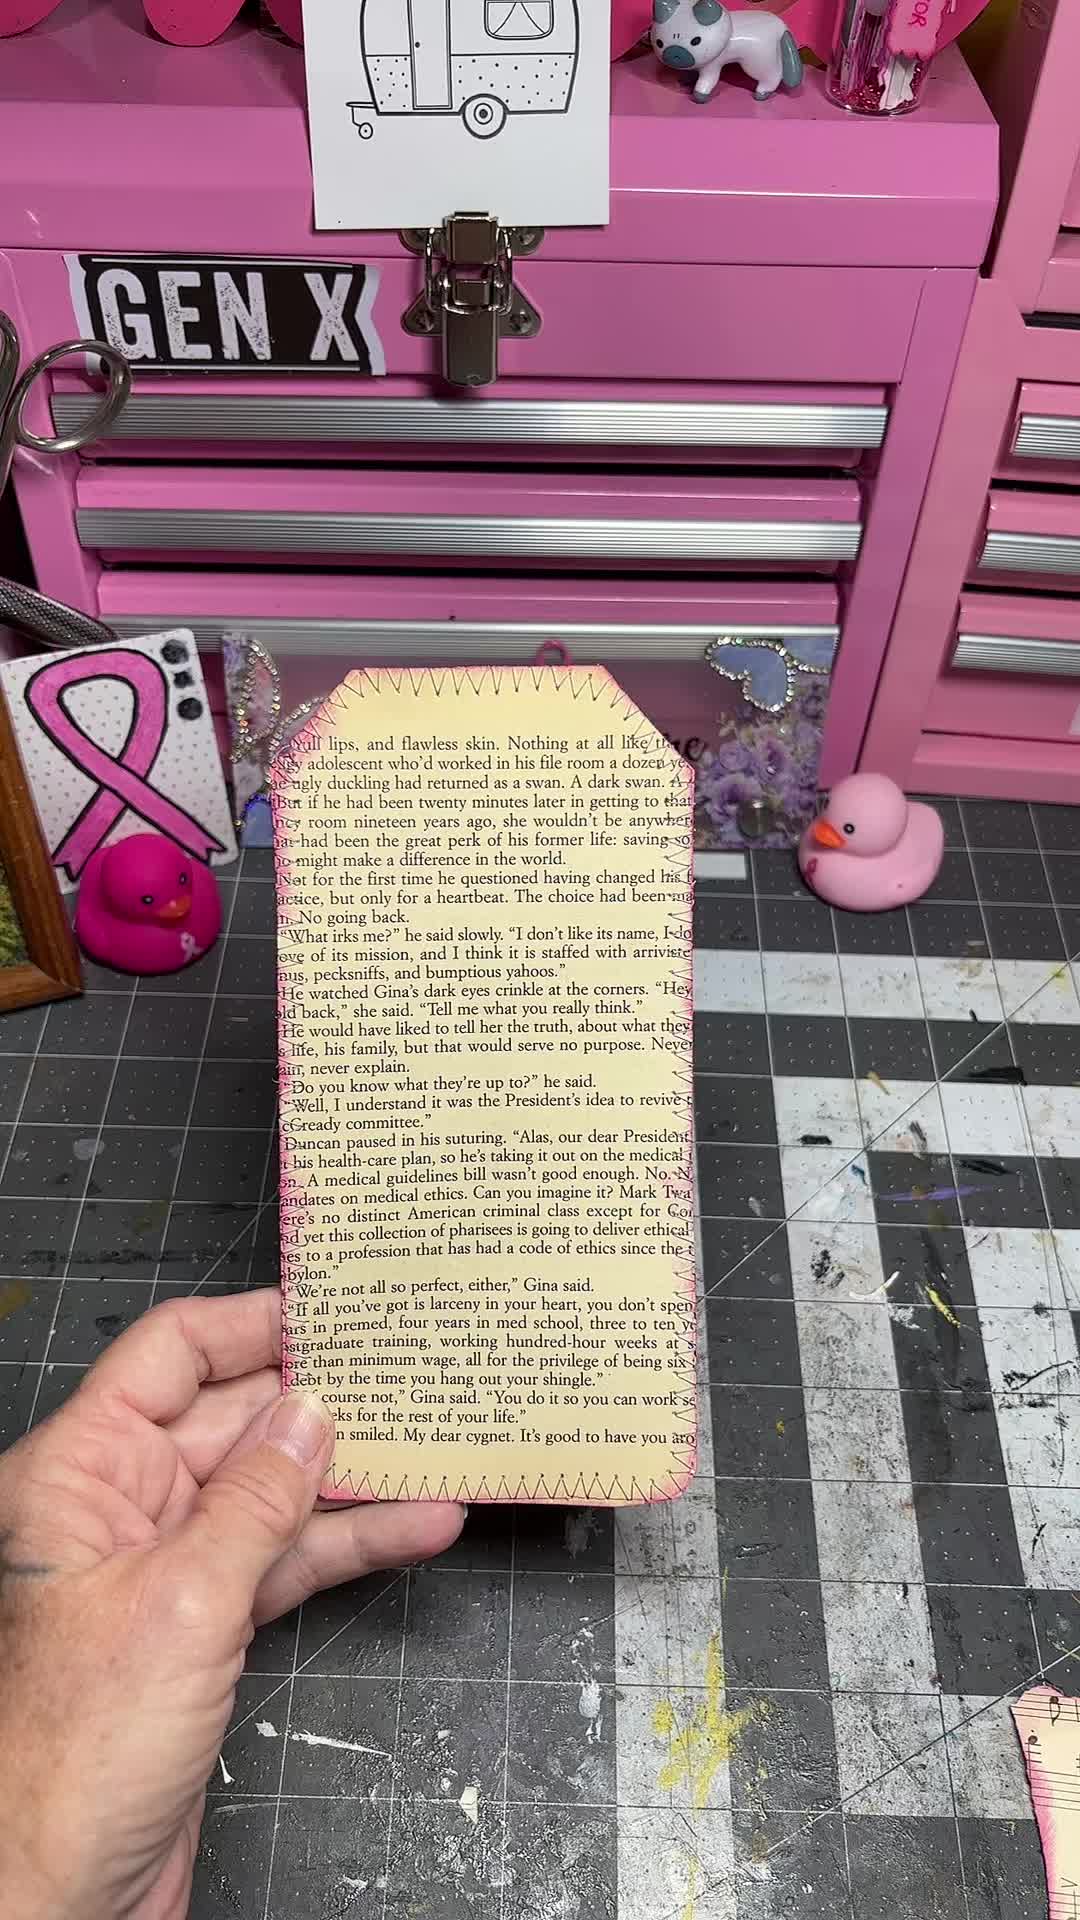 TOR
GEN X
full lips, and flawless skin. Nothing at all like
adolescent who'd worked in his file room a dozen
ugly duckling had returned as a swan. A dark swan. A
But if he had been twenty minutes later in getting to that
room nineteen years ago, she wouldn't be
had been the great perk of his former life: saving
might make a difference in the world.
Not for the first time he questioned having changed his
but only for a heartbeat. The choice had been
No going back.
"What irks me?" he said slowly. "I don't like its name, I do
of its mission, and I think it is staffed with
pecksniffs, and bumptious yahoos."
He watched Gina's dark eyes crinkle at the corners. "Hey
back," she said. "Tell me what you really think."
He would have liked to tell her the truth, about what they
life, his family, but that would serve no purpose. Never
never explain.
"Do you know what they're up to?" he said.
"Well, I understand it was the President's idea to revive
cCready committee."
Duncan paused in his suturing. "Alas, our dear President
his health-care plan, so he's taking it out on the medical
A medical guidelines bill wasn't good enough. No. N
andates on medical ethics. Can you imagine it? Mark Twa
ere's no distinct American criminal class except for Con
d yet this collection of pharisees is going to deliver ethical
es to a profession that has had a code of ethics since the t
bylon."
"We're not all so perfect, either," Gina said.
"If all you've got is larceny in your heart, you don't spen
ars in premed, four years in med school, three to ten ye
ostgraduate training, working hundred-hour weeks at s
ore than minimum wage, all for the privilege of being six
debt by the time you hang out your shingle."
course not," Gina said. "You do it so you can work se
eks for the rest of your life."
n smiled. My dear cygnet. It's good to have you aro